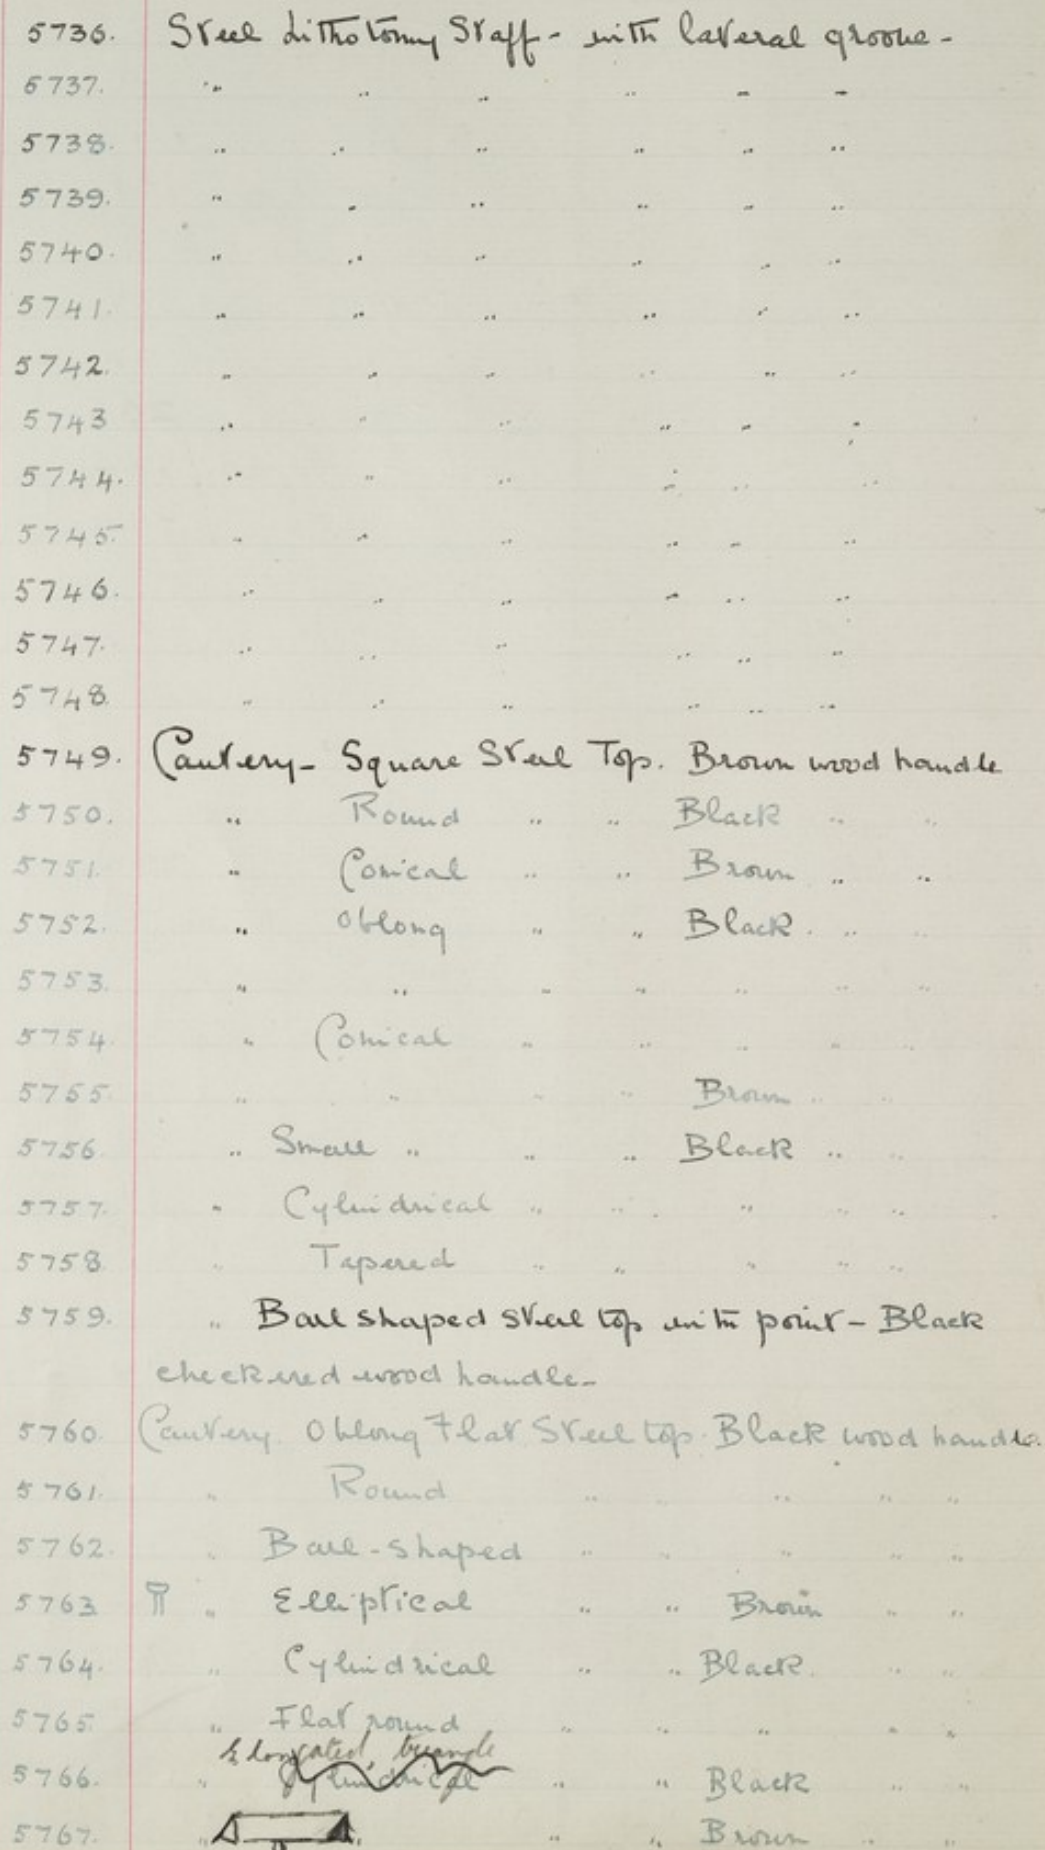 5736. Steel Lithotomy Staff - with lateral groove -
5737. " " " " " "
5738. " " " " " "
5739. " " " " " "
5740. " " " " " "
5741. " " " " " "
5742. " " " " " "
5743 " " " " " "
5744. " " " " " "
5745. " " " " " "
5746. " " " " " "
5747. " " " " " "
5748. " " " " " "
5749. Cautery - Square Steel Top. Brown wood handle
5750. " Round " " Black " "
5751. " Conical " " Brown " "
5752. " Oblong " " Black. " "
5753. " " " " " " "
5754. " Conical " " " " "
5755. " " " " Brown " "
5756. " Small " " " Black " "
5757. " Cylindrical " " " " "
5758. " Tapered " " " " "
5759. " Ball shaped steel top with point - Black
checkered wood handle -
5760. Cautery. Oblong Flat Steel top. Black wood handle.
5761. " Round " " " " "
5762. " Ball-shaped " " " " "
5763 " Elliptical " " Brown " "
5764. " Cylindrical " " Black. " "
5765. " Flat round " " " " "
Elongated triangle
5766. " Cylindrical " " Black " "
5767. " " " Brown " "